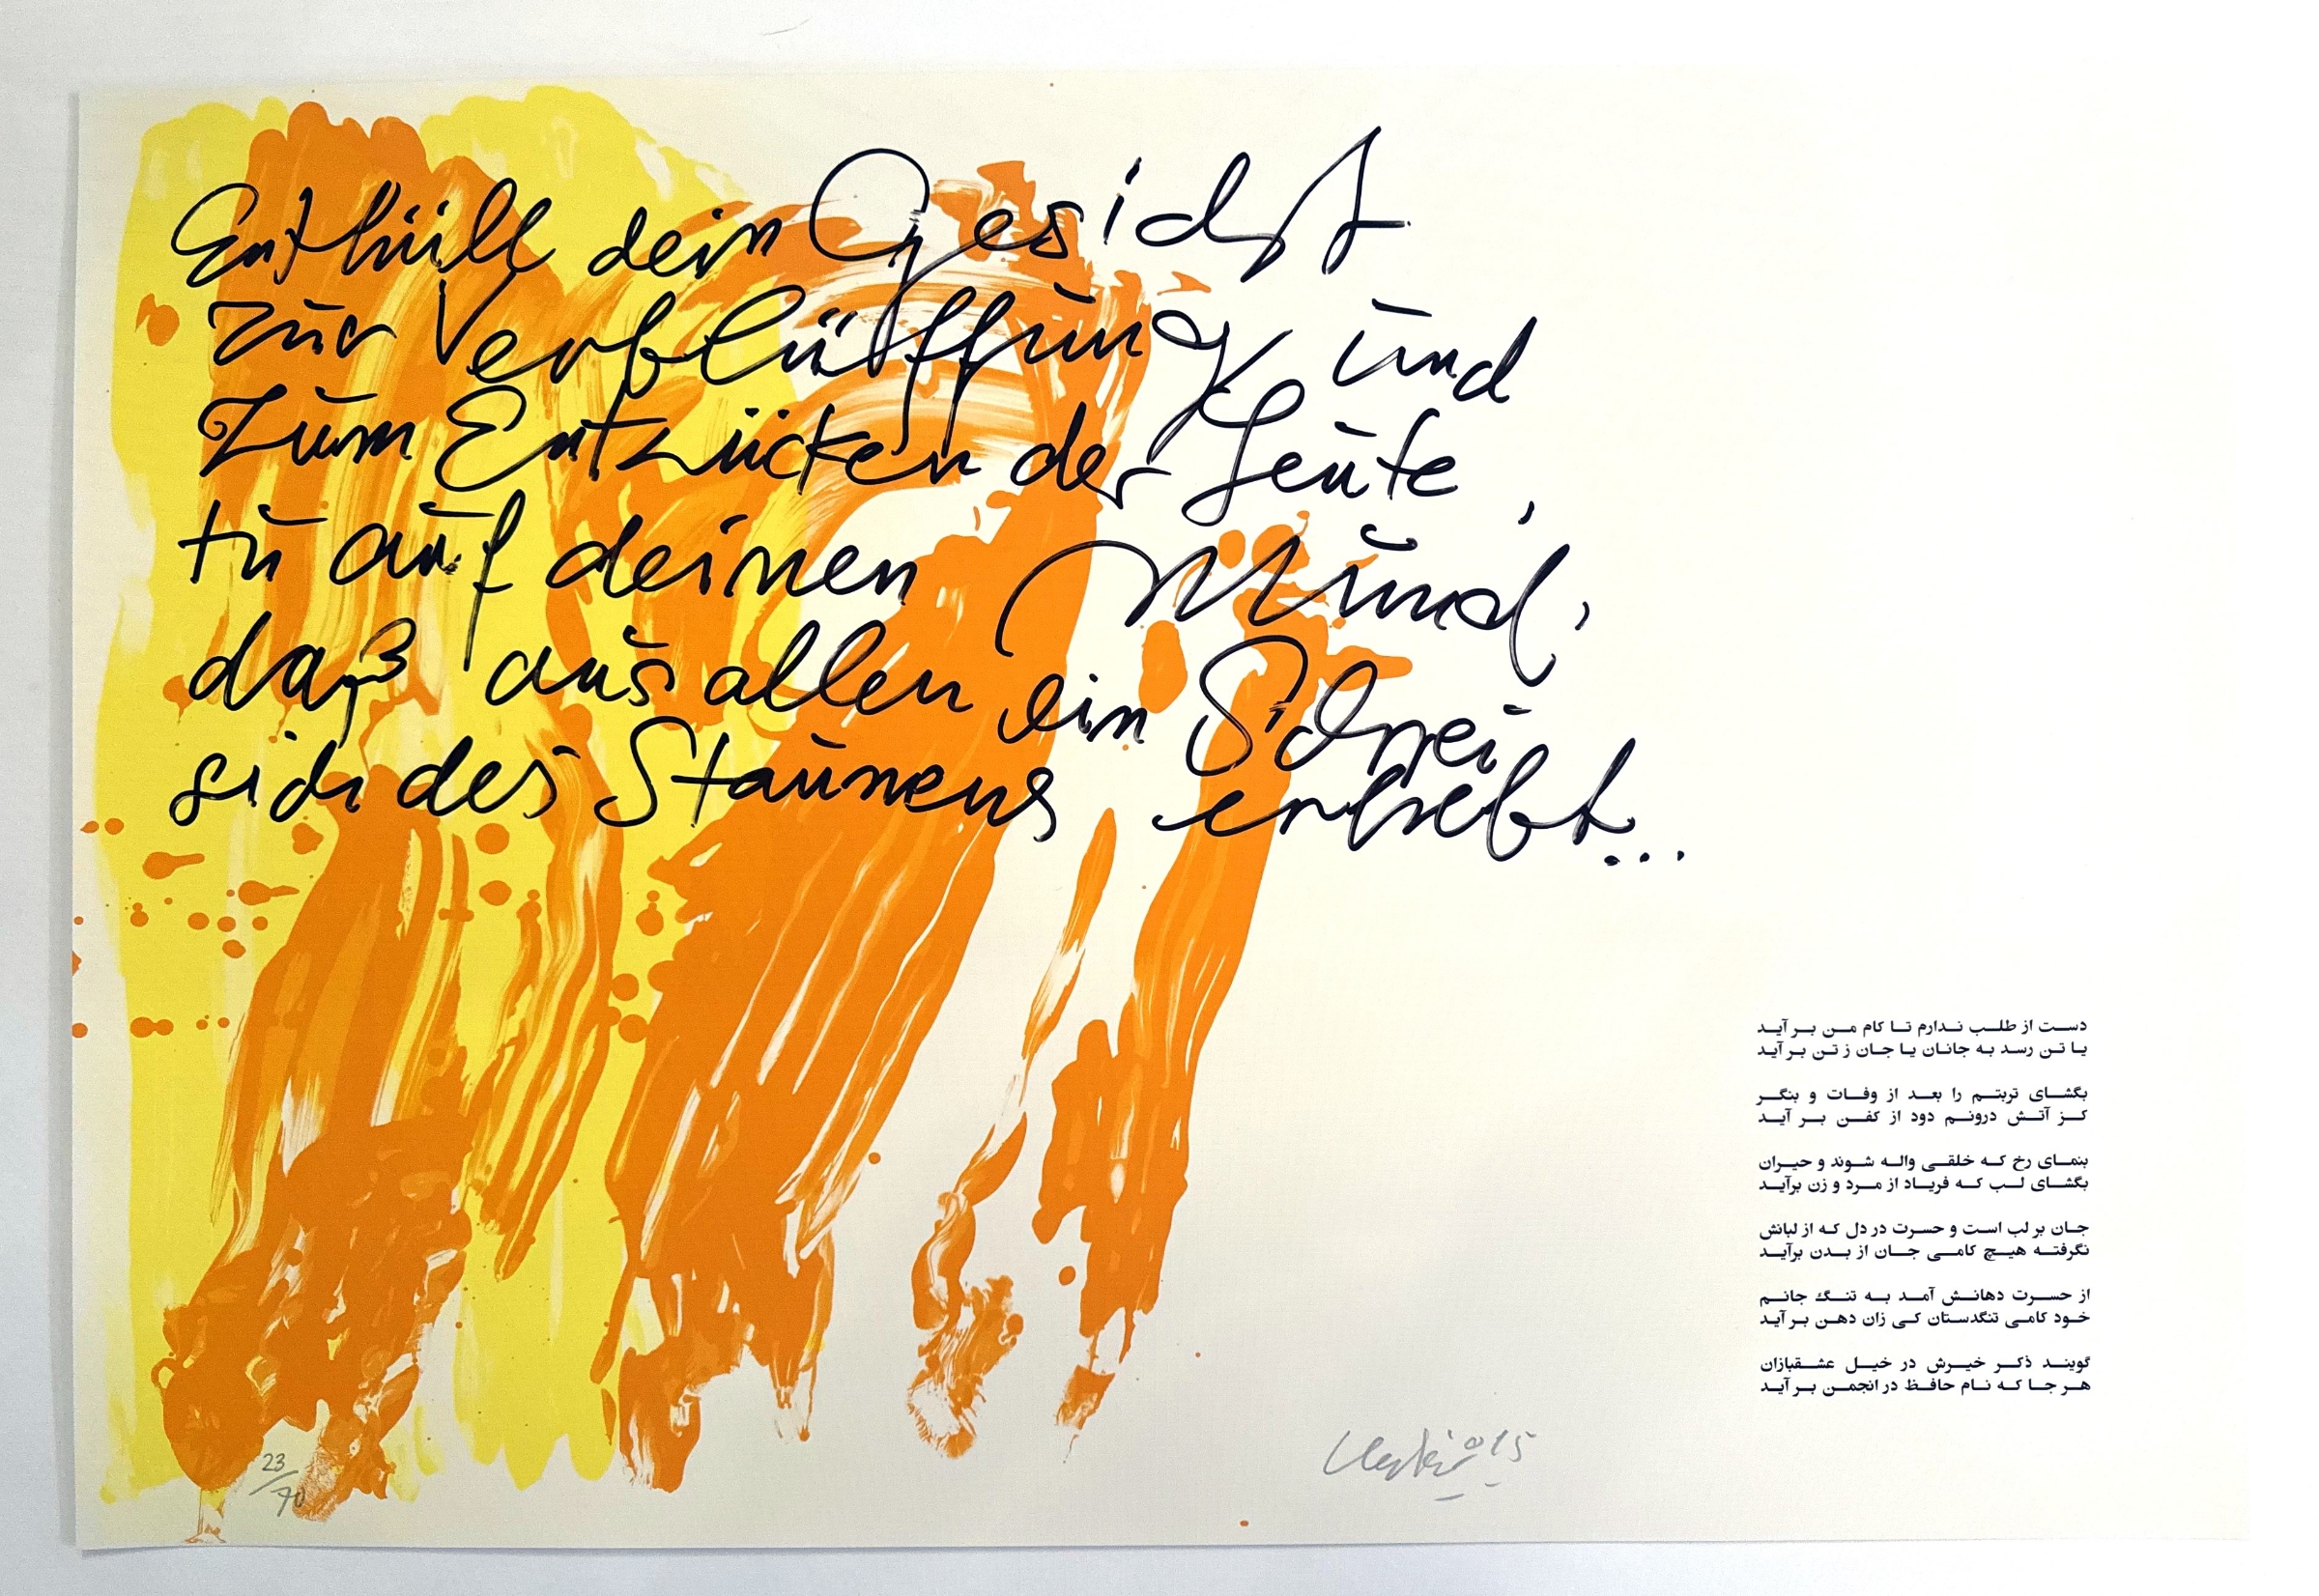 Enthüll dein Gesicht
zur Verblüffung und
Zum Entzücken der Leute,
tu auf deinen Mund,
daß aus allen ein Schrei
sich des Staunens erhebt...
دست از طلب ندارم تا کام من بر آید
یا تن رسد به جانان یا جان ز تن بر آید
بگشای تربتم را بعد از وفات و بنگر
کز آتش درونم دود از کفن بر آید
بنمای رخ که خلقی واله شوند و حیران
بگشای لب که فریاد از مرد و زن برآید
جان بر لب است و حسرت در دل که از لبانش
نگرفته هیچ کامی جان از بدن برآید
از حسرت دهانش آمد به تنگ جانم
خود کامی تنگدستان کی زان دهن بر آید
گویند ذکر خیرش در خیل عشقبازان
هر جا که نام حافظ در انجمن بر آید
23/70